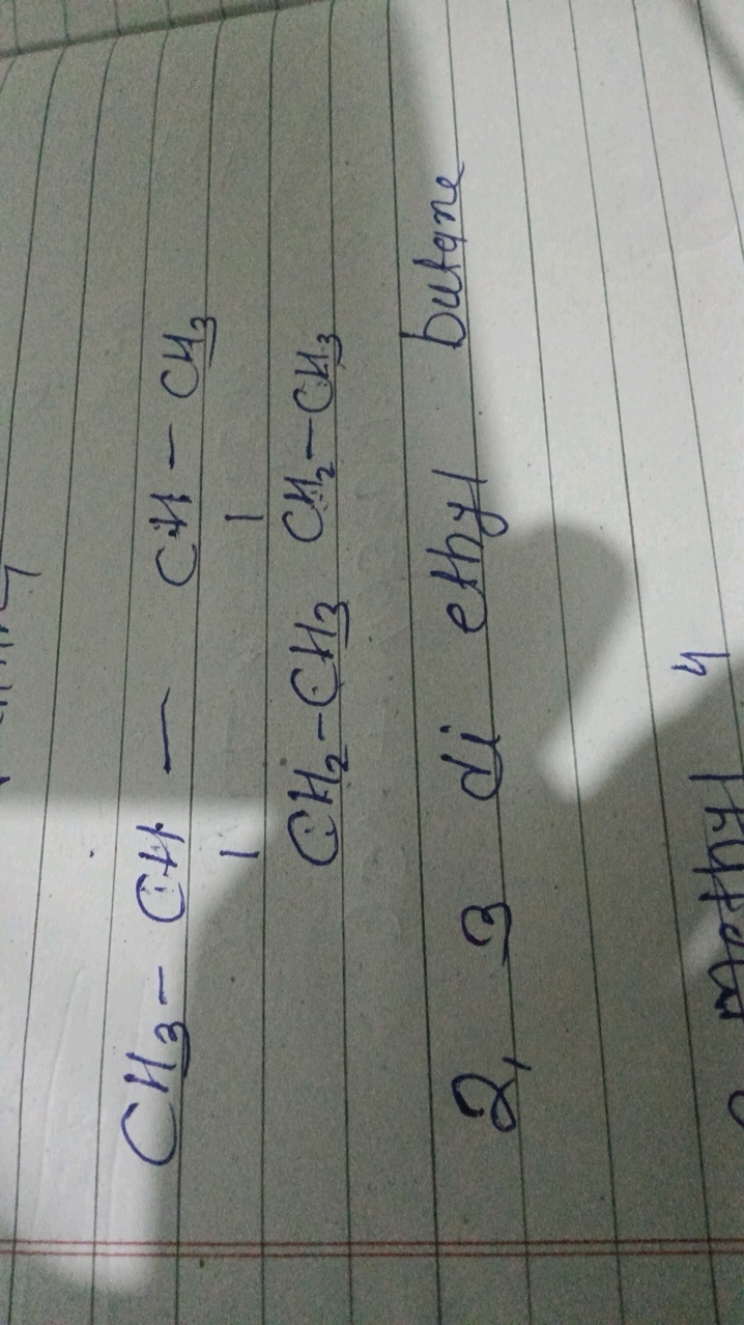 CH3 - CH - CH - CH3
| |
CH2-CH3 CH2-CH3
2, 3 di ethyl butane
methyl 4